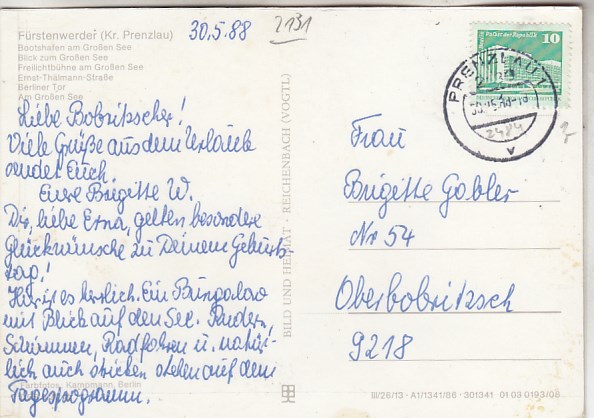 Fürstenwerder (Kr. Prenzlau)
Bootshafen am Großen See
Blick zum Großen See
Freilichtbühne am Großen See
Ernst-Thälmann-Straße
Berliner Tor
Am Großen See
30.5.88
2131
Liebe Bobritzscher!
Viele Grüße aus dem Urlaube
sendet Euch
Eure Brigitte W.
Dir, liebe Erna, gelten besondere
Glückwünsche zu Deinem Geburts-
tag!
Hier ist es herrlich. Ein Bungalow
mit Blick auf den See. Rudern,
Schwimmen, Radfahren u. natür-
lich auch stricken stehen auf dem
Tagesprogramm.
Farbfotos: Kampmann, Berlin
BILD UND HEIMAT · REICHENBACH (VOGTL)
Palast der Republik
10
PRENZLAU 1
Frau
Brigitte Gobler
Nr 54
Oberbobritzsch
9218
III/26/13 · A1/1341/86 · 301341 01 03 0193/08